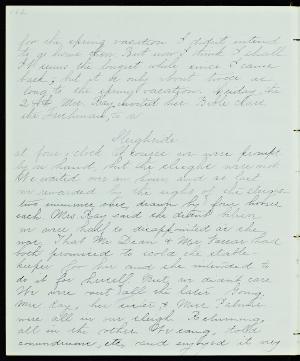 for the spring vacation. I didn't intend
to go home then. But now I think I shall
It seems the longest while since I came
back, but it is only about twice as
long to the spring vacation. Friday the
24th, Mrs. Ray invited her Bible class
the Freshman, to a
Sleighride
at four o'clock. Of course we were prompt-
ly on hand, but the sleighs were not.
We waited over an hour and at last
were rewarded by the sight of the sleighs
two immense ones, drawn by four horses
each. Mrs. Ray said she didn't know
if we were half so disappointed as she
was. That Mr. Dean & Mr. had
both promised to scold the stable-
keeper for her and she intended to
do it for herself. But, we didn't care
We were out all the later. Going,
Mrs. Ray, her sister & Miss
were all in our sleigh. Returning,
all in the other. We sang, told
conundrums, etc, and enjoyed it very